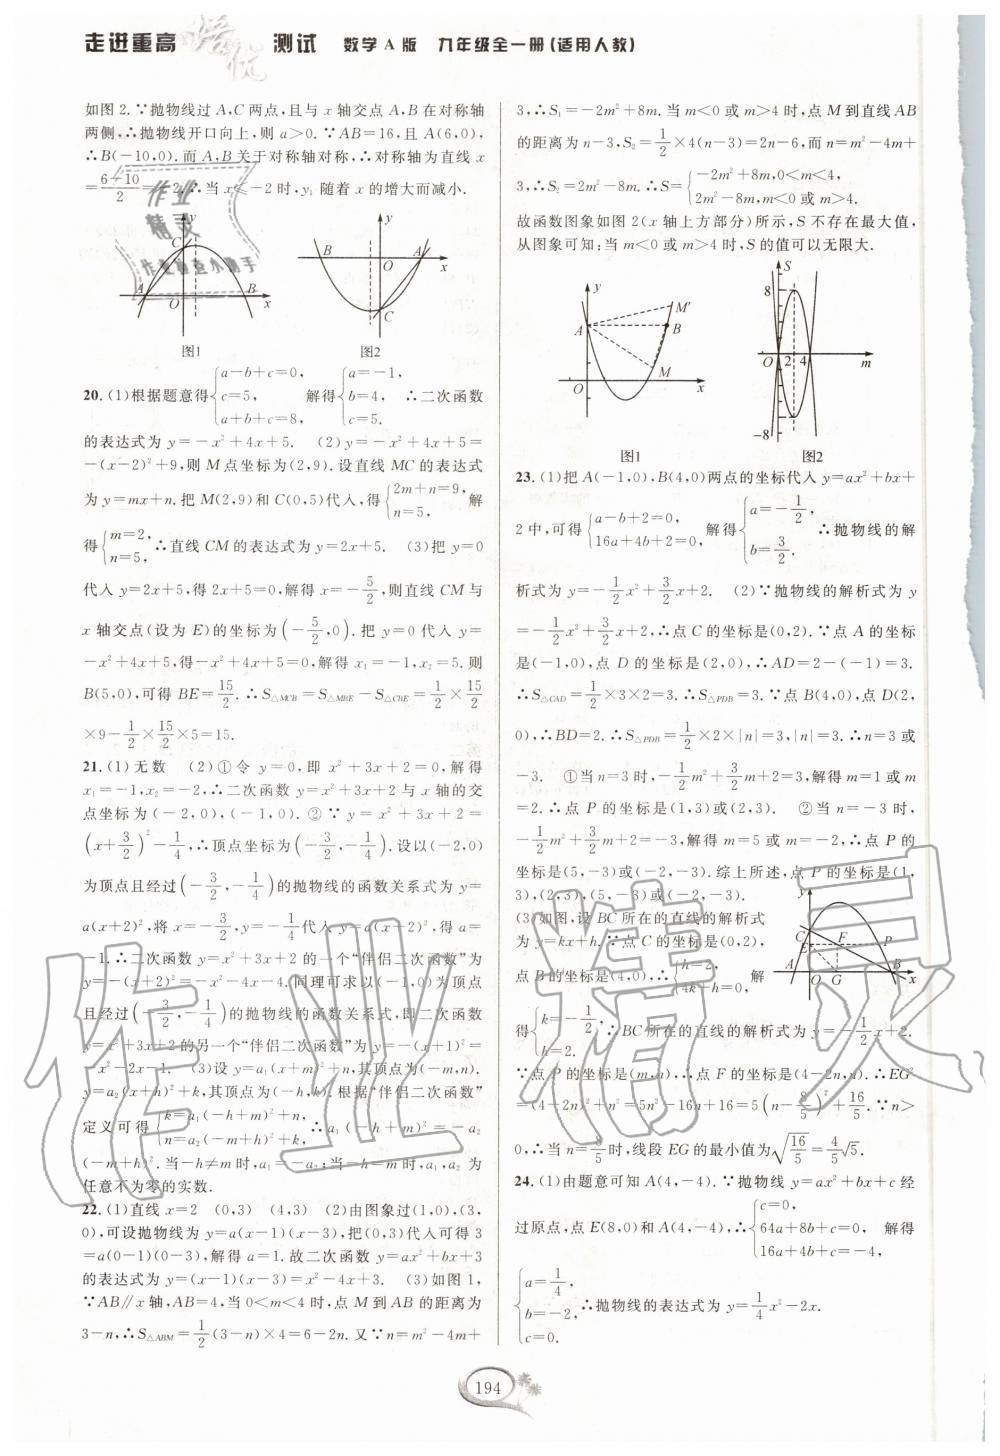 走进重高 培优 测试 数学 A 版 九年级全一册(适用人教)
如图 2.∵抛物线过 A,C 两点,且与 x 轴交点 A,B 在对称轴
两侧,∴抛物线开口向上,则 a>0.∵AB=16,且 A(6,0),
∴B(-10,0).而 A,B 关于对称轴对称,∴对称轴为直线 x
=\frac{6-10}{2}=-2,∴当 x≤-2 时,y₁ 随着 x 的增大而减小.
y
C
A
O
B
x
图1
y
B
O
A
x
C
图2
20.(1)根据题意得{a-b+c=0, c=5, a+b+c=8, 解得{a=-1, b=4, c=5. ∴二次函数
的表达式为 y=-x²+4x+5. (2)y=-x²+4x+5=
-(x-2)²+9,则 M 点坐标为(2,9).设直线 MC 的表达式
为 y=mx+n.把 M(2,9)和 C(0,5)代入,得{2m+n=9, n=5, 解
得{m=2, n=5, ∴直线 CM 的表达式为 y=2x+5. (3)把 y=0
代入 y=2x+5,得 2x+5=0,解得 x=-\frac{5}{2},则直线 CM 与
x 轴交点(设为 E)的坐标为(-\frac{5}{2},0).把 y=0 代入 y=
-x²+4x+5,得-x²+4x+5=0,解得 x₁=-1,x₂=5.则
B(5,0),可得 BE=\frac{15}{2}.∴S△MCB=S△MBE-S△CBE=\frac{1}{2}×\frac{15}{2}
×9-\frac{1}{2}×\frac{15}{2}×5=15.
21.(1)无数 (2)①令 y=0,即 x²+3x+2=0,解得
x₁=-1,x₂=-2,∴二次函数 y=x²+3x+2 与 x 轴的交
点坐标为(-2,0),(-1,0). ②∵y=x²+3x+2=
(x+\frac{3}{2})²-\frac{1}{4},∴顶点坐标为(-\frac{3}{2},-\frac{1}{4}).设以(-2,0)
为顶点且经过(-\frac{3}{2},-\frac{1}{4})的抛物线的函数关系式为 y=
a(x+2)²,将 x=-\frac{3}{2},y=-\frac{1}{4}代入 y=a(x+2)²,得 a=
-1.∴二次函数 y=x²+3x+2 的一个“伴侣二次函数”为
y=-(x+2)²=-x²-4x-4.同理可求以(-1,0)为顶点
且经过(-\frac{3}{2},-\frac{1}{4})的抛物线的函数关系式,即二次函数
y=x²+3x+2 的另一个“伴侣二次函数”为 y=-(x+1)²=
-x²-2x-1. (3)设 y=a₁(x+m)²+n,其顶点为(-m,n).
y=a₂(x+h)²+k,其顶点为(-h,k).根据“伴侣二次函数”
定义可得{k=a₁(-h+m)²+n, n=a₂(-m+h)²+k, ∴a₁(-h+m)²=-a₂
(-m+h)².当-h≠m时,a₁=-a₂;当-h=-m 时,a₁,a₂ 为
任意不为零的实数.
22.(1)直线 x=2 (0,3) (4,3) (2)由图象过(1,0),(3,
0),可设抛物线为 y=a(x-1)(x-3),把(0,3)代入可得 3
=a(0-1)(0-3),解得 a=1.故二次函数 y=ax²+bx+3
的表达式为 y=(x-1)(x-3)=x²-4x+3. (3)如图 1,
∵AB∥x 轴,AB=4,当 0<m<4 时,点 M 到 AB 的距离为
3-n,∴S△ABM=\frac{1}{2}(3-n)×4=6-2n.又∵n=m²-4m+
3,∴S₁=-2m²+8m.当 m<0 或 m>4 时,点 M 到直线 AB
的距离为 n-3,S₂=\frac{1}{2}×4(n-3)=2n-6,而 n=m²-4m+
3,∴S₂=2m²-8m.∴S={-2m²+8m,0<m<4, 2m²-8m,m<0 或 m>4.
故函数图象如图 2(x 轴上方部分)所示,S 不存在最大值,
从图象可知:当 m<0 或 m>4 时,S 的值可以无限大.
y
M′
A
B
M
O
x
图1
S
8
O
2
4
m
-8
图2
23.(1)把 A(-1,0),B(4,0)两点的坐标代入 y=ax²+bx+
2 中,可得{a-b+2=0, 16a+4b+2=0, 解得{a=-\frac{1}{2}, b=\frac{3}{2}. ∴抛物线的解
析式为 y=-\frac{1}{2}x²+\frac{3}{2}x+2. (2)∵抛物线的解析式为 y
=-\frac{1}{2}x²+\frac{3}{2}x+2,∴点 C 的坐标是(0,2).∵点 A 的坐标
是(-1,0),点 D 的坐标是(2,0),∴AD=2-(-1)=3.
∴S△CAD=\frac{1}{2}×3×2=3.∴S△PDB=3.∵点 B(4,0),点 D(2,
0),∴BD=2.∴S△PDB=\frac{1}{2}×2×|n|=3,|n|=3.∴n=3 或
-3. ①当 n=3 时,-\frac{1}{2}m²+\frac{3}{2}m+2=3,解得 m=1 或 m
=2.∴点 P 的坐标是(1,3)或(2,3). ②当 n=-3 时,
-\frac{1}{2}m²+\frac{3}{2}m+2=-3,解得 m=5 或 m=-2,∴点 P 的
坐标是(5,-3)或(-2,-3).综上所述,点 P 的坐标是(1,
3),(2,3),(5,-3)或(-2,-3).
(3)如图,设 BC 所在的直线的解析式
为 y=kx+h.∵点 C 的坐标是(0,2),
点 B 的坐标是(4,0),∴{h=2, 4k+h=0, 解
y
C
E
F
P
A
O
G
B
x
得{k=-\frac{1}{2}, h=2. ∴BC 所在的直线的解析式为 y=-\frac{1}{2}x+2.
∵点 P 的坐标是(m,n),∴点 F 的坐标是(4-2n,n).∴EG²
=(4-2n)²+n²=5n²-16n+16=5(n-\frac{8}{5})²+\frac{16}{5}.∵n>
0,∴当 n=\frac{8}{5}时,线段 EG 的最小值为\sqrt{\frac{16}{5}}=\frac{4}{5}√5.
24.(1)由题意可知 A(4,-4).∵抛物线 y=ax²+bx+c 经
过原点,点 E(8,0)和 A(4,-4),∴{c=0, 64a+8b+c=0, 16a+4b+c=-4, 解得
{a=\frac{1}{4}, b=-2, c=0. ∴抛物线的表达式为 y=\frac{1}{4}x²-2x.
194
作业精灵
作业
精灵
作业检查小助手